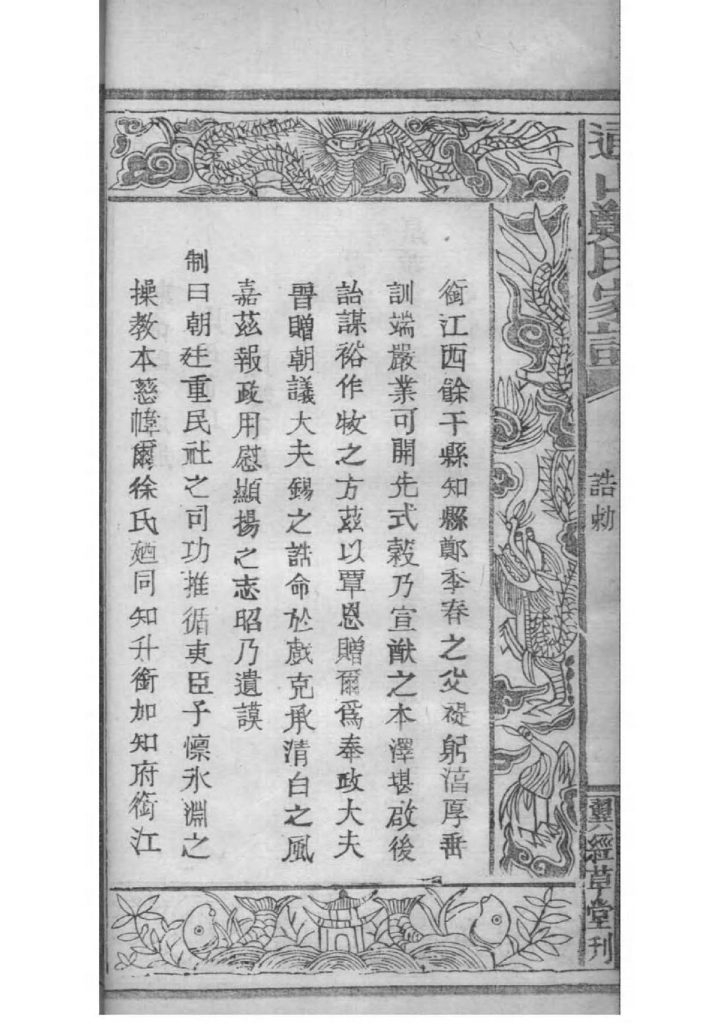 鄭氏家
誥勅
翼經草堂刊
銜江西餘干縣知縣鄭季春之父褆躬淳厚垂
訓端嚴業可開先式穀乃宣猷之本澤堪啟後
詒謀裕作牧之方茲以覃恩贈爾爲奉政大夫
晋贈朝議大夫錫之誥命於戲克承清白之風
嘉茲報政用慰顯揚之志昭乃遺謨
制曰朝廷重民社之司功推循吏臣子懍氷淵之
操教本慈幃爾徐氏廼同知升銜加知府銜江